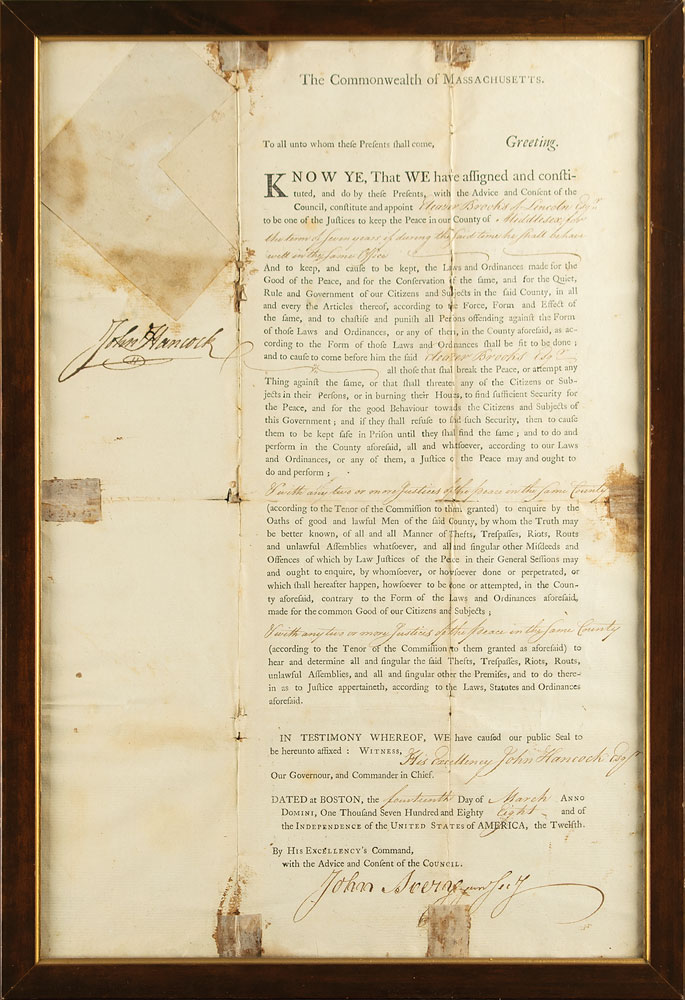 The Commonwealth of MASSACHUSETTS.
To all unto whom theſe Preſents ſhall come, Greeting.
KNOW YE, That WE have aſſigned and conſti-
tuted, and do by theſe Preſents, with the Advice and Conſent of the
Council, conſtitute and appoint Eleazer Brooks of Lincoln Esqr
to be one of the Juſtices to keep the Peace in our County of Middlesex, for
the term of seven years if during the said time he shall behave
well in the same Office
And to keep, and cauſe to be kept, the Laws and Ordinances made for the
Good of the Peace, and for the Conſervation of the ſame, and for the Quiet,
Rule and Government of our Citizens and Subjects in the ſaid County, in all
and every the Articles thereof, according to the Force, Form and Effect of
the ſame, and to chaſtiſe and puniſh all Perſons offending againſt the Form
of thoſe Laws and Ordinances, or any of them, in the County aforeſaid, as ac-
cording to the Form of thoſe Laws and Ordinances ſhall be fit to be done ;
John Hancock
and to cauſe to come before him the ſaid Eleazer Brooks Esqr
all thoſe that ſhall break the Peace, or attempt any
Thing againſt the ſame, or that ſhall threaten any of the Citizens or Sub-
jects in their Perſons, or in burning their Houſes, to find ſufficient Security for
the Peace, and for the good Behaviour towards the Citizens and Subjects of
this Government ; and if they ſhall refuſe to find ſuch Security, then to cauſe
them to be kept ſafe in Priſon until they ſhall find the ſame ; and to do and
perform in the County aforeſaid, all and whatſoever, according to our Laws
and Ordinances, or any of them, a Juſtice of the Peace may and ought to
do and perform ;
& with any two or more Justices of the Peace in the same County
(according to the Tenor of the Commiſſion to them granted) to enquire by the
Oaths of good and lawful Men of the ſaid County, by whom the Truth may
be better known, of all and all Manner of Thefts, Treſpaſſes, Riots, Routs
and unlawful Aſſemblies whatſoever, and all and ſingular other Miſdeeds and
Offences of which by Law Juſtices of the Peace in their General Seſſions may
and ought to enquire, by whomſoever, or howſoever done or perpetrated, or
which ſhall hereafter happen, howſoever to be done or attempted, in the Coun-
ty aforeſaid, contrary to the Form of the Laws and Ordinances aforeſaid,
made for the common Good of our Citizens and Subjects ;
& with any two or more Justices of the Peace in the same County
(according to the Tenor of the Commiſſion to them granted as aforeſaid) to
hear and determine all and ſingular the ſaid Thefts, Treſpaſſes, Riots, Routs,
unlawful Aſſemblies, and all and ſingular other the Premiſes, and to do there-
in as to Juſtice appertaineth, according to the Laws, Statutes and Ordinances
aforeſaid.
IN TESTIMONY WHEREOF, WE have cauſed our public Seal to
be hereunto affixed : WITNESS, His Excellency John Hancock Esqr
Our Governour, and Commander in Chief.
DATED at BOSTON, the fourteenth Day of March ANNO
DOMINI, One Thouſand Seven Hundred and Eighty Eight and of
the INDEPENDENCE of the UNITED STATES of AMERICA, the Twelfth.
By HIS EXCELLENCY's Command,
with the Advice and Conſent of the COUNCIL.
John Avery jun Secy